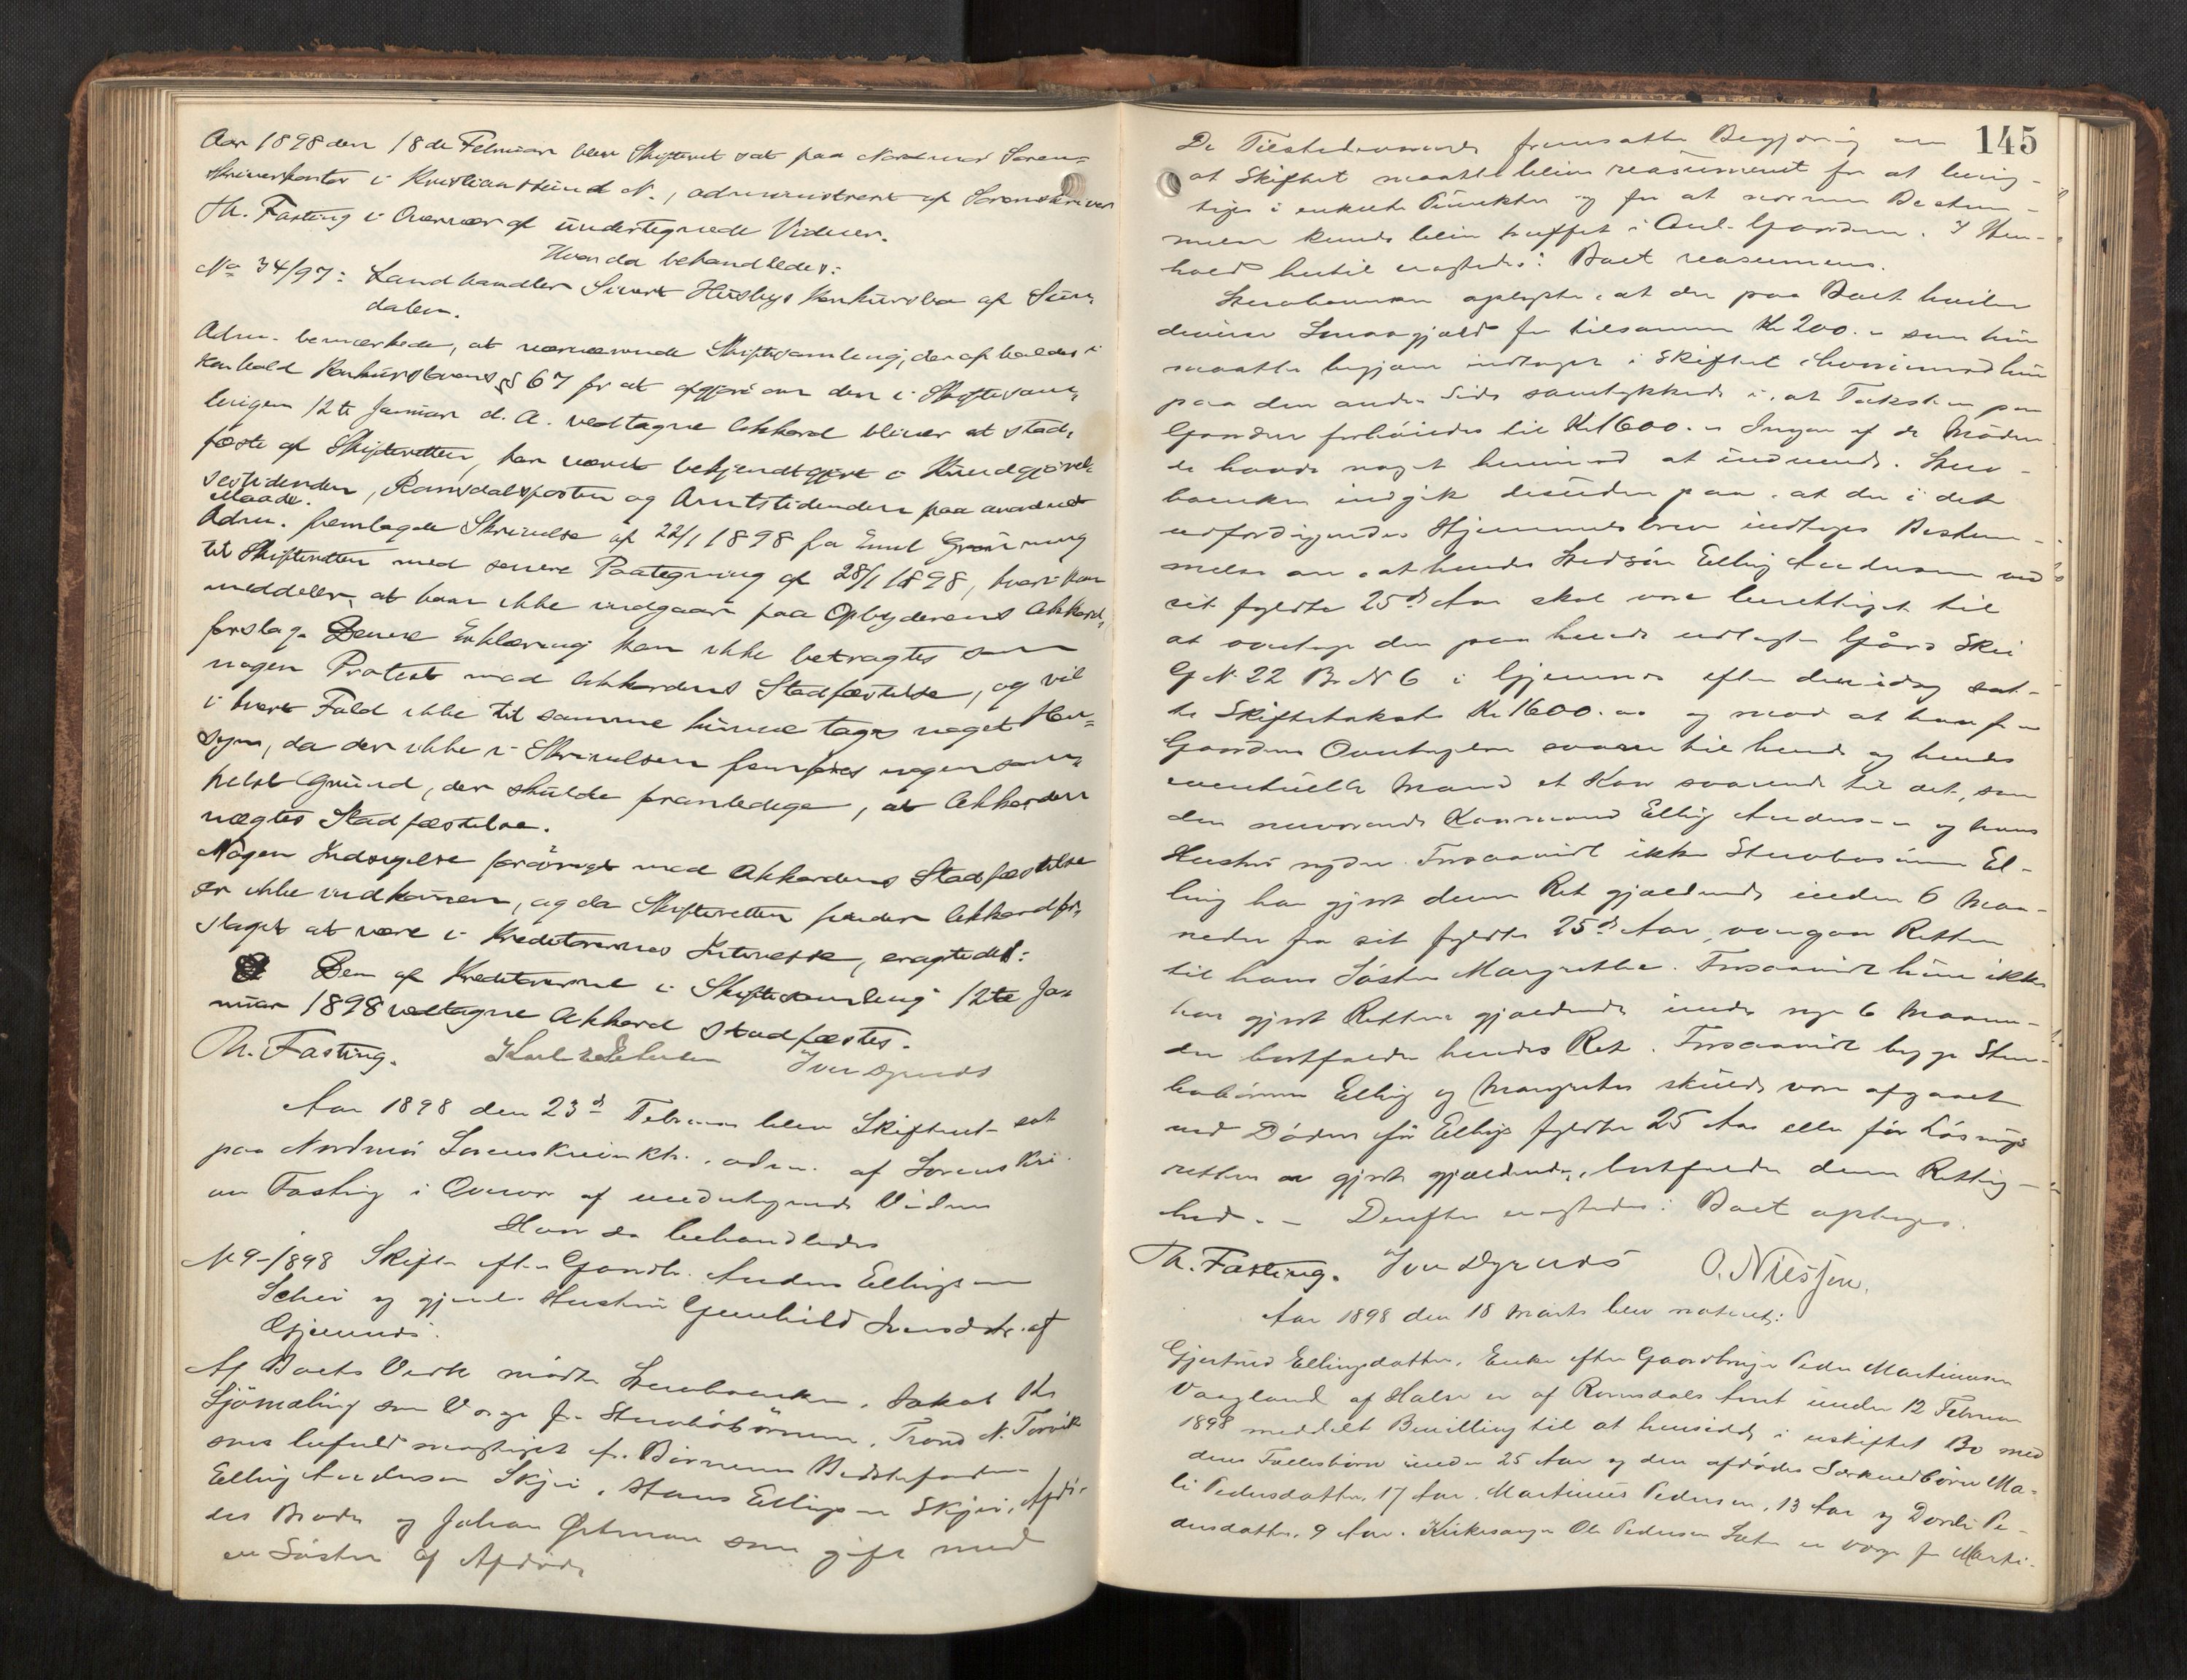 Aar 1898 den 18de Februar blev Skifteret sat paa Nordmør Soren-
skriverkontor i Kristianssund N., administreret af Sorenskriver
Th. Fasting i Overvær af undertegnede Vidner.
Hvor da behandledes:
No 34/97: Landhandler Sivert Husbys Konkursbo af Surn-
dalen.
Adm. bemærkede, at nærværende Skiftesamling, der afholdes i
Henhold Konkurslovens § 67 for at afgjøre om den i Skiftesam-
lingen 12te Januar d. A. vedtagne Akkord bliver at stad-
fæste af Skifteretten, har været bekjendtgjort i Kundgjørel-
sestidenden, Romsdalsposten og Amtstidenden paa anordnet
Maade.
Adm. fremlagde Skrivelse af 22/1 1898 fra Emil Grønning
til Skifteretten med senere Paategning af 28/1 1898, hvori han
meddeler, at han ikke indgaar paa Opbyderens Akkord-
forslag. Denne Erklæring kan ikke betragtes som
nogen Protest mod Akkordens Stadfæstelse, og vil
i hvert Fald ikke til samme kunne tages noget Hen-
syn, da der ikke i Skrivelsen fremføres nogensom-
helst Grund, der skulde foranledige, at Akkorden
nægtes Stadfæstelse.
Nogen Indsigelse forøvrigt mod Akkordens Stadfæstelse
er ikke indkommen, og da Skifteretten finder Akkordfor-
slaget at være i Kreditorernes Interesse, eragtedes:
Den af Kreditorerne i Skiftesamling 12te Ja-
nuar 1898 vedtagne Akkord stadfæstes.
Th. Fasting. Karl Iver Dyrnes
Aar 1898 den 23d Februar blev Skifteret sat
paa Nordmør Sorenskriverktr. adm. af Sorenskri-
ver Fasting i Overvær af undertegnede Vidner
Hvor da behandledes
N 9-1898 Skifte efter Gaardbr. Anders Ellingsen
Schei og gjenl. Hustru Gunhild Iversdtr. af
Gjemnes.
Af Boets Vedk. mødte Stervboenken, Jakob Kr.
Sjømæling som Værge for Stervbobørnene, Trond N. Torvik
som befuldmægtiget for Børnenes Bedstefader
Elling Andersen Skjei, Hans Ellingsen Skjei, Afdø-
des Broder og Johan Ørtman som gift med
en Søster af Afdøde
145
De Tilstedeværende fremsatte Begjæring om
at Skiftet maatte blive reasumeret for at berig-
tiges i enkelte Punkter og for at nærmere Bestem-
melser kunde blive truffet i Anl. Gaarden. I Hen-
hold hertil eragtedes: Boet reasumeres.
Stervboenken oplyste, at der paa Boet hviler
diverse Smaagjæld for tilsammen Kr 200.- som hun
maatte begjære indtaget i Skiftet, hvorimod hun
paa den anden Side samtykkede i, at Taksten paa
Gaarden forhøiedes til Kr 1600.- Ingen af de Mødende
havde noget herimod at indvende. Sterv-
boenken indgik desuden paa, at der i det
udfærdigendes Hjemmelsbrev indtages Bestem-
melse om, at hendes Stedsøn Elling Andersen ved
sit fyldte 25de Aar skal være berettiget til
at overtage den paa hende udlagte Gård Skei
G N 22 Br N 6 i Gjemnes efter den idag sat-
te Skiftetakst Kr 1600.00 og mod at han fra
Gaardens Overtagelse svarer til hende og hendes
eventuelle Mand et Kaar svarende til det, som
den nuværende Kaarmand Elling Andersen og hans
Hustru nyder. Forsaavidt ikke Stervbosønnen El-
ling har gjort denne Ret gjældende inden 6 Maa-
neder fra sit fyldte 25de Aar, overgaar Retten
til hans Søster Margrethe. Forsaavidt hun ikke
har gjort Retten gjældende inden nye 6 Maane-
der bortfalder hendes Ret. Forsaavidt begge Sterv-
bobørnene Elling og Margrethe skulde være afgaaet
ved Døden før Ellings fyldte 25 Aar eller før Løsnings-
retten er gjort gjældende, bortfalder denne Rettig-
hed. - Derefter eragtedes: Boet optages.
Th. Fasting. Iver Dyrnes O. Nilssen.
Aar 1898 den 18 Marts blev noteret:
Gjertrud Ellingsdatter, Enke efter Gaardbruger Peder Martinusen
Vaagland af Halse er af Romsdals Amt under 12 Februar
1898 meddelt Bevilling til at hensidde i uskiftet Bo med
deres Fællesbørn under 25 Aar og den afdødes Særkuldbørn Ma-
li Pedersdatter, 17 Aar, Martinus Pedersen, 13 Aar og Dordi Pe-
dersdatter, 9 Aar. Kirkesanger Ole Pedersen Sæter er Værge for Marti-